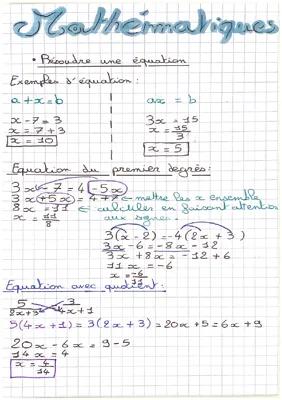 Mathématiques
• Résoudre une équation
Exemples d'équation :
a + x = b
ax = b
x - 7 = 3
x = 7 + 3
x = 10
3x = 15
x = 15/3
x = 5
Equation du premier degrés :
3x - 7 = 4 - 5x
3x + 5x = 4 + 7 ← mettre les x ensemble
8x = 11 ← calculer en faisant attention
aux signes.
x = 11/8
3(x - 2) = -4(2x + 3)
3x - 6 = -8x - 12
3x + 8x = -12 + 6
11x = -6
x = -6/11
Equation avec quotient :
5/2x+3 = 3/4x+1
5(4x + 1) = 3(2x + 3) = 20x + 5 = 6x + 9
20x - 6x = 9 - 5
14x = 4
x = 4/14